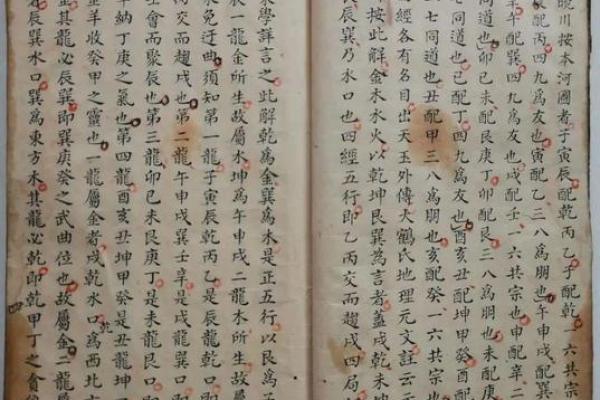 晥川按本河圖者子寅辰配乾丙乙子配乾一六共宗
配丙四九為友也寅配乙三八為朋也午申戌配巽
辛午配巽四九為友也戌配壬一六共宗也申配辛二
同道也卯巳未配艮庚丁卯配艮三八為朋也未配庚
七同道也巳配丁四九為友也酉亥丑配坤甲癸酉
七同道也丑配甲三八為朋也亥配癸一六共宗也
經各有名目出天玉外傳大鶴氏地理元文註云
按此解金木水火以乾坤艮巽為言者蓋戌乾未坤
辰巽乃水口也四經五行即乙丙交而趨戌四局
求學詳言之此解乾為金巽為木是正五行以艮為
一龍金所生故屬水坤為午申戌二龍木所生故屬
免迂曲須知第一龍子寅辰乾丙乙是辰龍乾口
丙交而趨戌也第二龍午申戌巽壬辛是戌龍巽
會而聚辰也第三龍卯巳未艮庚丁是未龍艮口
牛納丁庚之氣也第四龍酉亥丑坤甲癸是丑龍坤
金羊收癸甲之靈也一龍屬金者戌乾水口為西北
金其龍必辰巽即巽庚癸之武曲位也故屬金二龍
辰巽水口巽為東方木其龍必乾即乾甲丁之貪